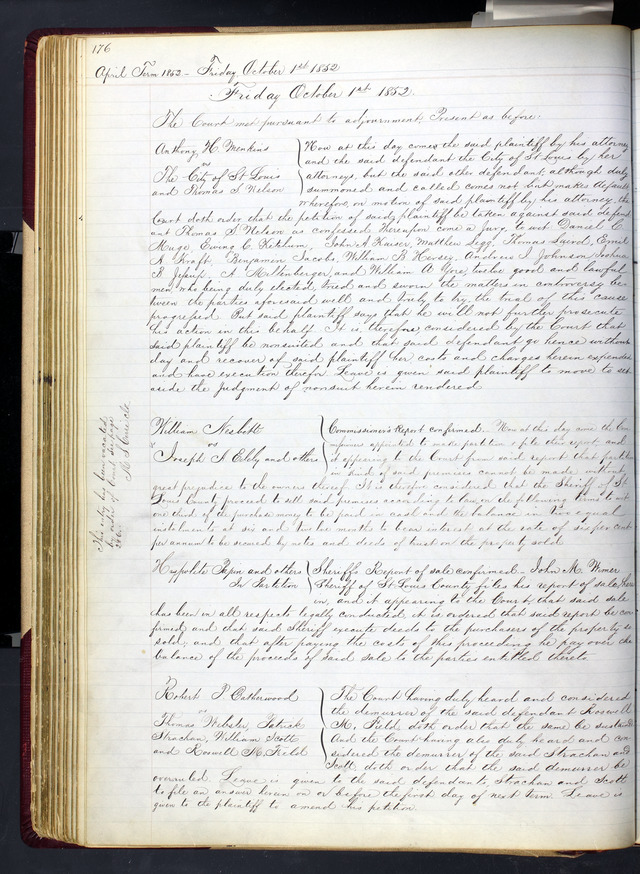 176
April Term 1852 - Friday October 1st 1852
Friday October 1st 1852
The Court met pursuant to adjournment. Present as before.
Anthony H. Menkins
vs
The City of St Louis
and Thomas S. Nelson
Now at this day comes the said plaintiff by his attorney
and the said defendant the City of St Louis by her
attorneys, but the said other defendant, although duly
summoned and called comes not but makes default
Wherefore, on motion of said plaintiff by his attorney, the
Court doth order that the petition of said plaintiff be taken against said defend
ant Thomas S Nelson as confessed thereupon come a jury to wit Daniel C
Muge, Ewing C. Ketchum, John A Kaiser, Matthew Legg, Thomas
A Kraft, Benjamin Jacobs, William B. Hersey, Andrew J Johnson, Joshua
B Jessup, A Hollenberger, and William A Gore, twelve good and lawful
men, who being duly elected, tried and sworn the matters in controversy be
tween the parties aforesaid well and truly to try, the trial of this cause
progressed. But said plaintiff says that he will not further prosecute
his action in this behalf. It is therefore considered by the Court that
said plaintiff be nonsuited and that said defendant go hence without
day and recover of said plaintiff her costs and charges herein expended
and have execution therefor. Leave is given said plaintiff to move to set
aside the judgment of nonsuit herein rendered.
William Nesbott
vs
Joseph S Elby and others
Commissioner's Report confirmed. Now at this day come the Com
missioners appointed to make partition & file their report, and
it appearing to the Court from said report that partition
in kind of said premises cannot be made without
great prejudice to the owners thereof It is therefore considered that the Sheriff of St
Louis County proceed to sell said premises according to law, on the following terms to wit
one third of the purchase money to be paid in cash and the balance in two equal
instalments at six and twelve months to bear interest at the rate of six per cent
per annum to be secured by notes and deeds of trust on the property sold.
This entry having been vacated
by order of Court see page
236
Hyppolete Papin and others
In Partition
Sheriff's Report of sale confirmed - John M. Wimer
Sheriff of St Louis County files his report of sale here
in, and it appearing to the Court, that said sale
has been in all respects legally conducted, it is ordered that said report be con
firmed and that said Sheriff execute deeds to the purchasers of the property so
sold, and that after paying the costs of this proceeding he pay over the
balance of the proceeds of said sale to the parties entitled thereto.
Robert P Catherwood
vs
Thomas Webster, Patrick
Strachan, William Scott
and Roswell M. Field
The Court having duly heard and considered
the demurrer of the said defendant Roswell
M. Field doth order that the same be sustained
And the Court having also duly heard and con
sidered the demurrer of the said Strachan and
Scott, doth order that the said demurrer be
overruled. Leave is given to the said defendants, Strachan and Scott
to file an answer herein on or before the first day of next term. Leave is
given to the plaintiff to amend his petition.